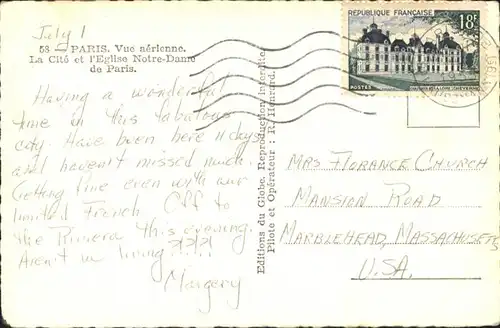 July 1
58 — PARIS. Vue aérienne.
La Cité et l'Eglise Notre-Dame
de Paris.
Having a wonderful
time in this fabulous
city. Have been here 11 days
and haven't missed much.
Getting fine even with our
limited French. Off to
the Riviera this evening.
Aren't in living???!
Margery
Editions du Globe, Reproduction interdite.
Pilote et Opérateur : R. Henrard.
RÉPUBLIQUE FRANÇAISE
18F
POSTES
MRS FLORANCE CHURCH
MANSION ROAD
MARBLEHEAD, MASSACHUSETTS
U.S.A.